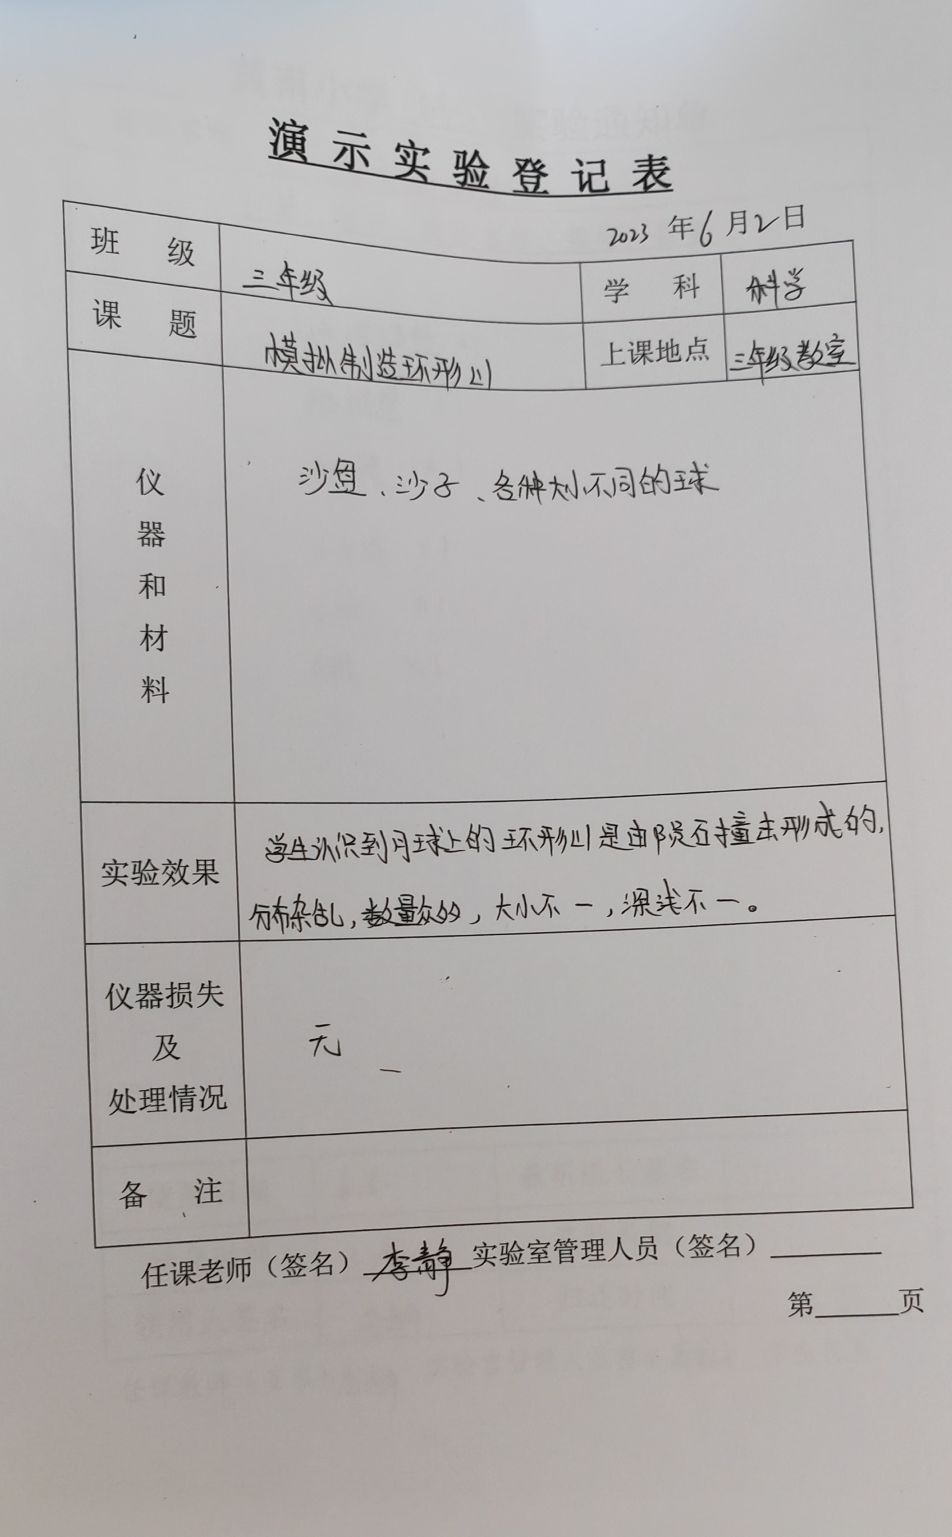 演示实验登记表
2023 年 6 月 2 日
班 级 三年级 学 科 科学
课 题 模拟制造环形山 上课地点 三年级教室
仪器和材料 沙盘、沙子、各种大小不同的球
实验效果 学生认识到月球上的环形山是由陨石撞击形成的,
分布杂乱,数量众多,大小不一,深浅不一。
仪器损失
及 无
处理情况
备 注
任课老师（签名）李静 实验室管理人员（签名）______
第______页